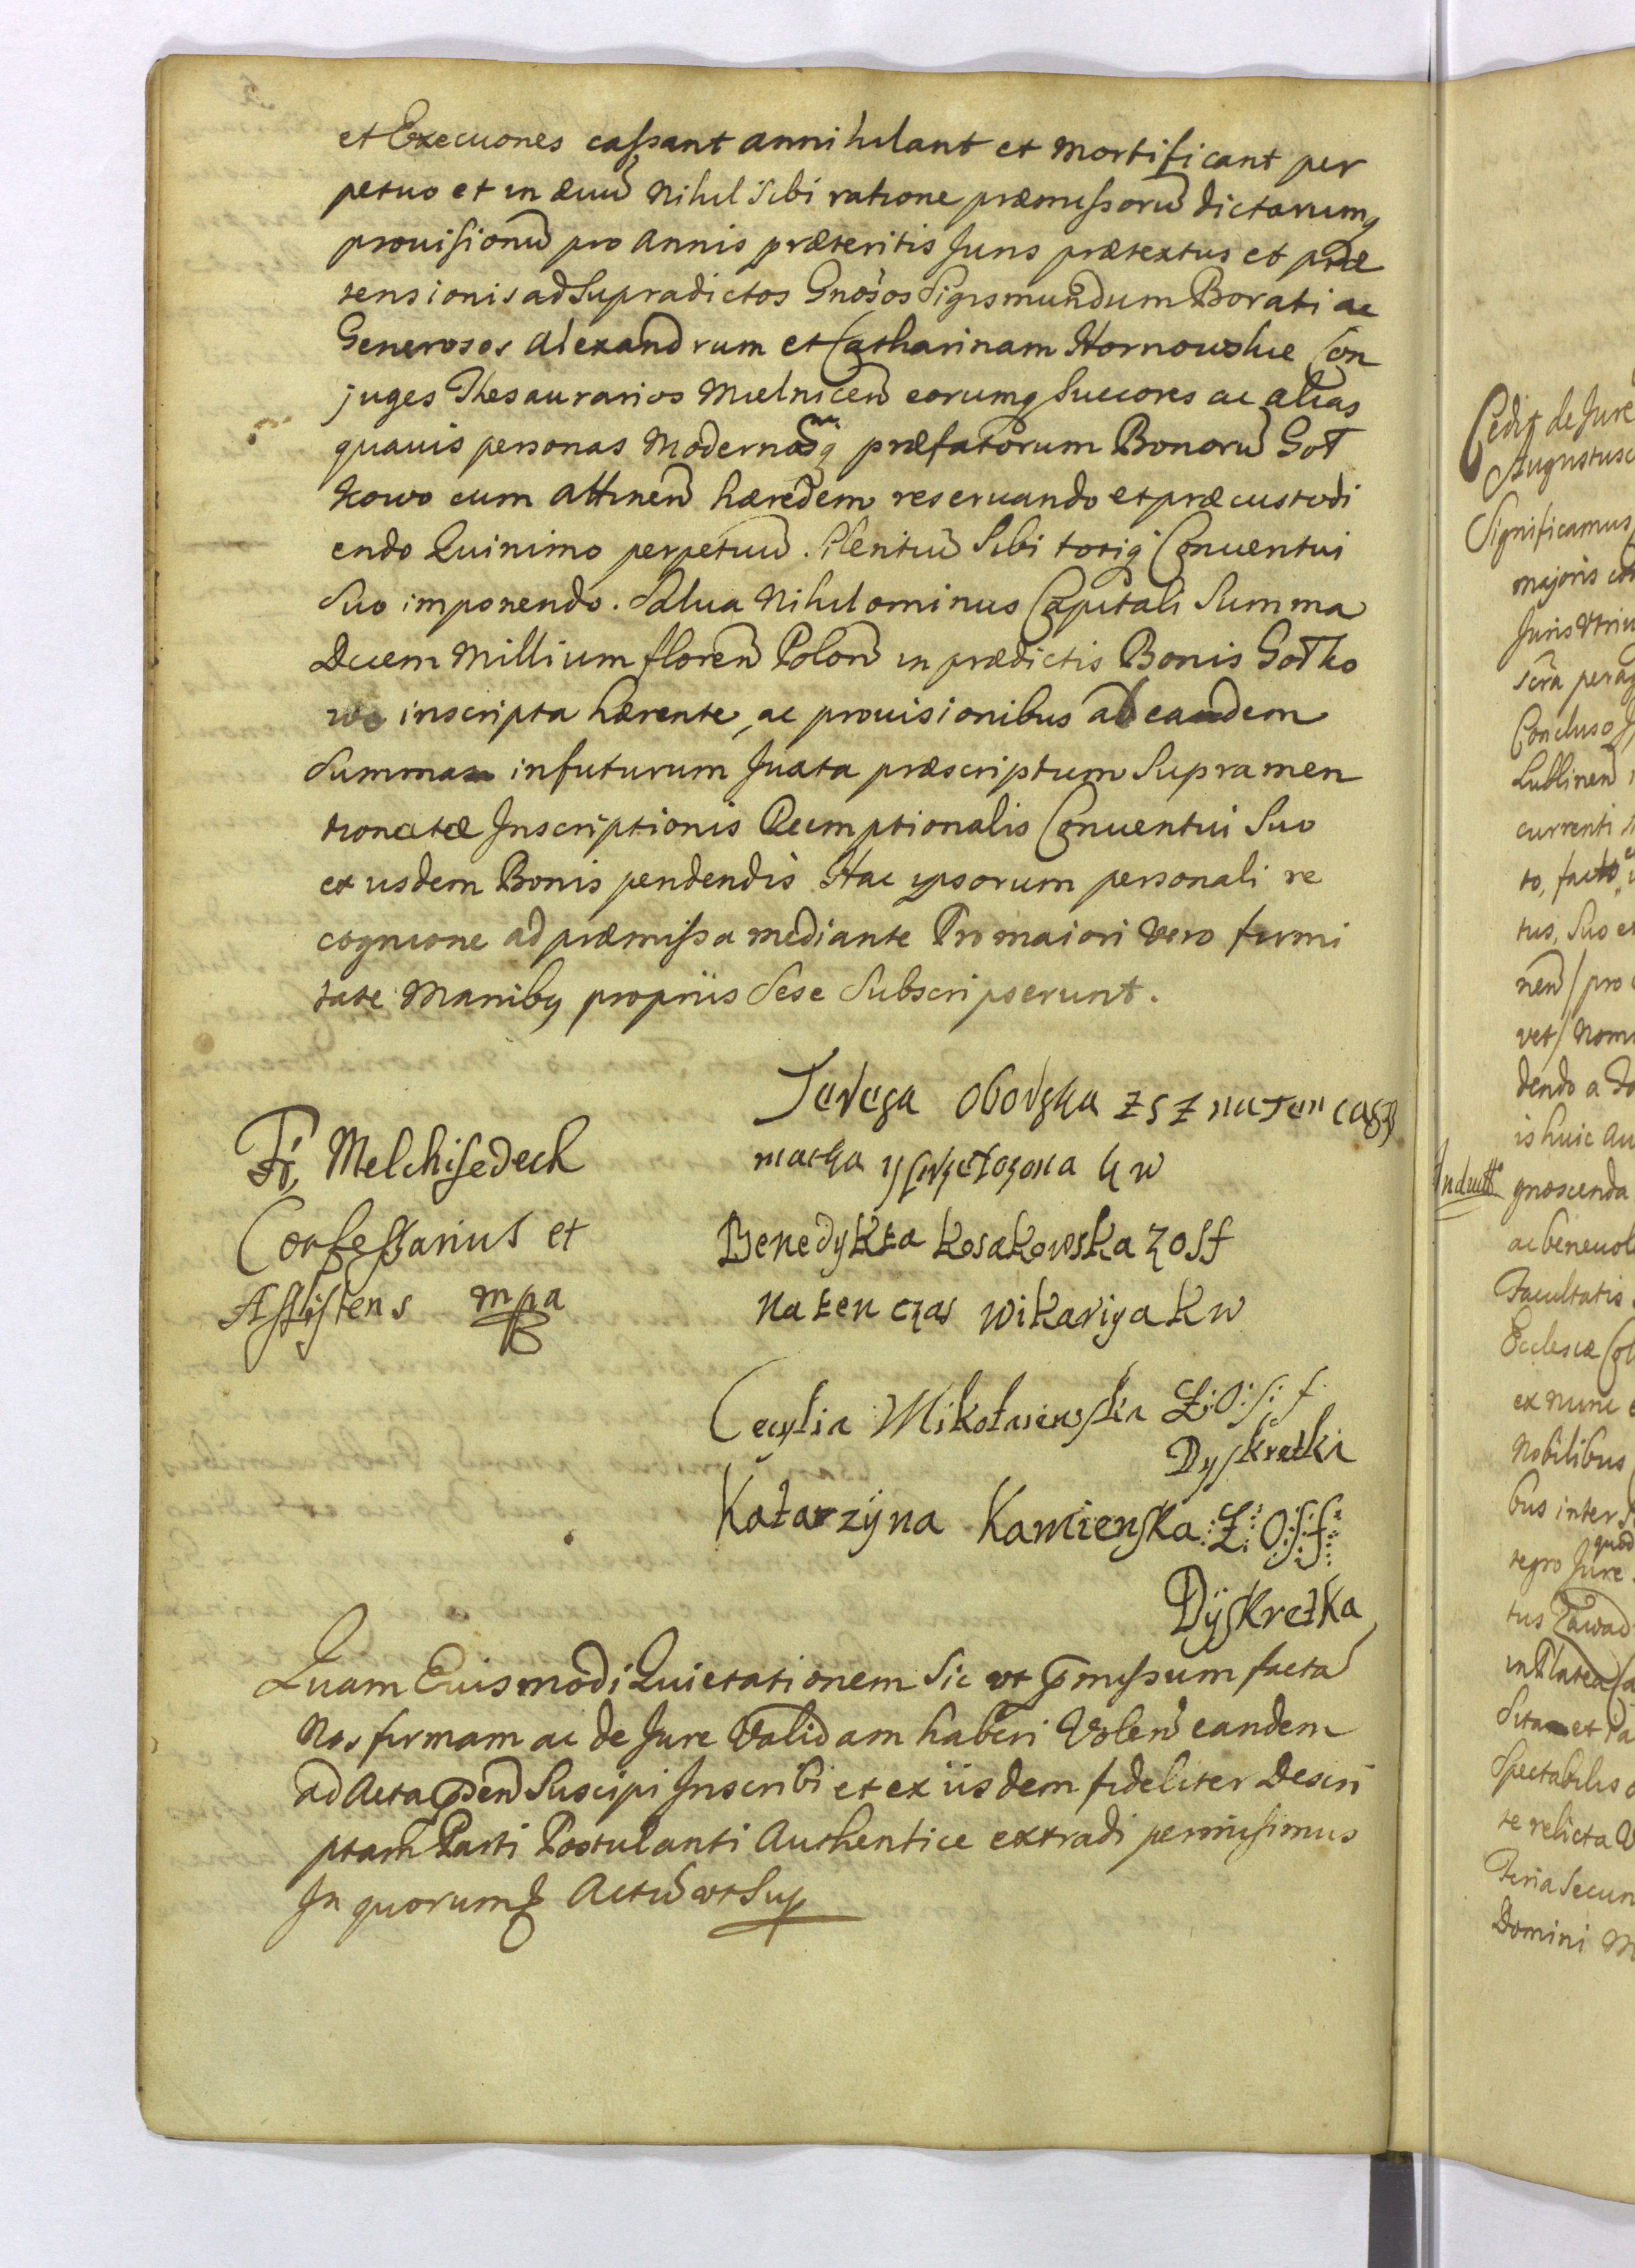 et Execuones cassant annihilant et mortificant per
petuo et in ævũ Nihil Sibi ratione præmissorũ dictarumq
prouisionũ pro Annis præteritis Juris prætextus et præ
tensionis ad Supradictos Gnosos Sigismundum Borati ac
Generosos Alexandrum et Catharinam Hornowskie Con
juges Thesaurarios Mielnicen̄ eorumq Succores ac alias
quauis personas Modernosq præfatorum Bonorũ Got
kowo cum Attinen̄ hæredem reseruando et præcustodi
endo Quinimo perpetuũ Silentiũ Sibi totiq Conuentui
Suo imponendo. Salua Nihilominus Capitali Summa
Decem Millium floren̄ Polon̄ in prædictis Bonis Gotko
wo inscripta hærente, ac prouisionibus ab eadem
Summa in futurum Juxta præscriptum Supramen
tionatæ Inscriptionis Reemptionalis Conuentui Suo
ex iisdem Bonis pendendis Hac ipsorum personali re
cognicone ad præmissa mediante Pro maiori vero firmi
tate Manibq propriis Sese Subscripserunt.
Teresa Oborska Z S Z na ten czas
matka
Fr, Melchisedech
Confessarius et
Assistens mpa
Benedykta Kosakowska ZOSF
na ten czas wikariya KW
Cecylia Mikołaiewska Z:O:S:F
Dyskretka
Katarzyna Kamienska: Z: O:S:F:
Dyskretka
Quam Eiusmodi Quietationem Sic ut p̄missum facta
Nos firmam ac de Jure Validam haberi Volen̄ eandem
ad Acta p̄sen̄ Suscipi Inscribi et ex iisdem fideliter Descri
ptam Parti Postulanti Authentice extradi permisimus
In quorum Actũ ut Sup
Cedit de Jure
Augustus
Significamus
majoris
Juris Vtriu
Concluso
Lublinen̄
currenti
to, facto
tus, Suo et
nen̄ / pro
vet / Nom
dendo a
is huic Au
Induct
gnoscenda
ac beneuol
Facultatis
Ecclesiæ Col
ex nunc
Nobilibus
bus inter
quod
tegro Jure
tus Zawad
in Platea
Sita et
Spectabilis
te relicta
Feria Secun
Domini M